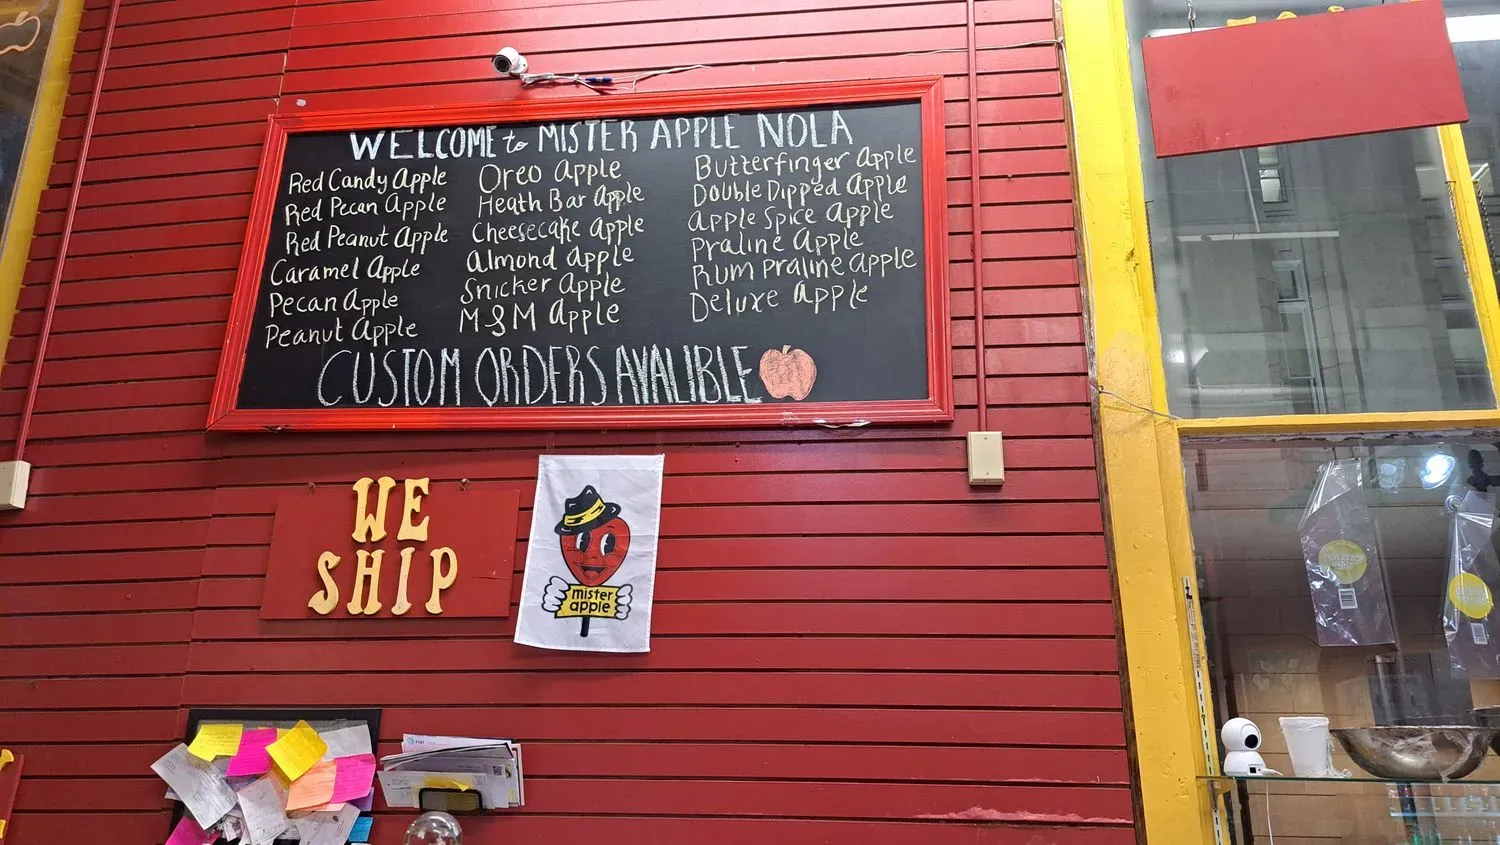 WELCOME to MISTER APPLE NOLA
Red Candy Apple
Red Pecan Apple
Red Peanut Apple
Caramel Apple
Pecan Apple
Peanut Apple
Oreo Apple
Heath Bar Apple
Cheesecake Apple
Almond Apple
Snicker Apple
M&M Apple
Butterfinger Apple
Double Dipped Apple
Apple Spice Apple
Praline Apple
Rum Praline Apple
Deluxe Apple
CUSTOM ORDERS AVALIBLE
WE
SHIP
mister
apple
AT&T